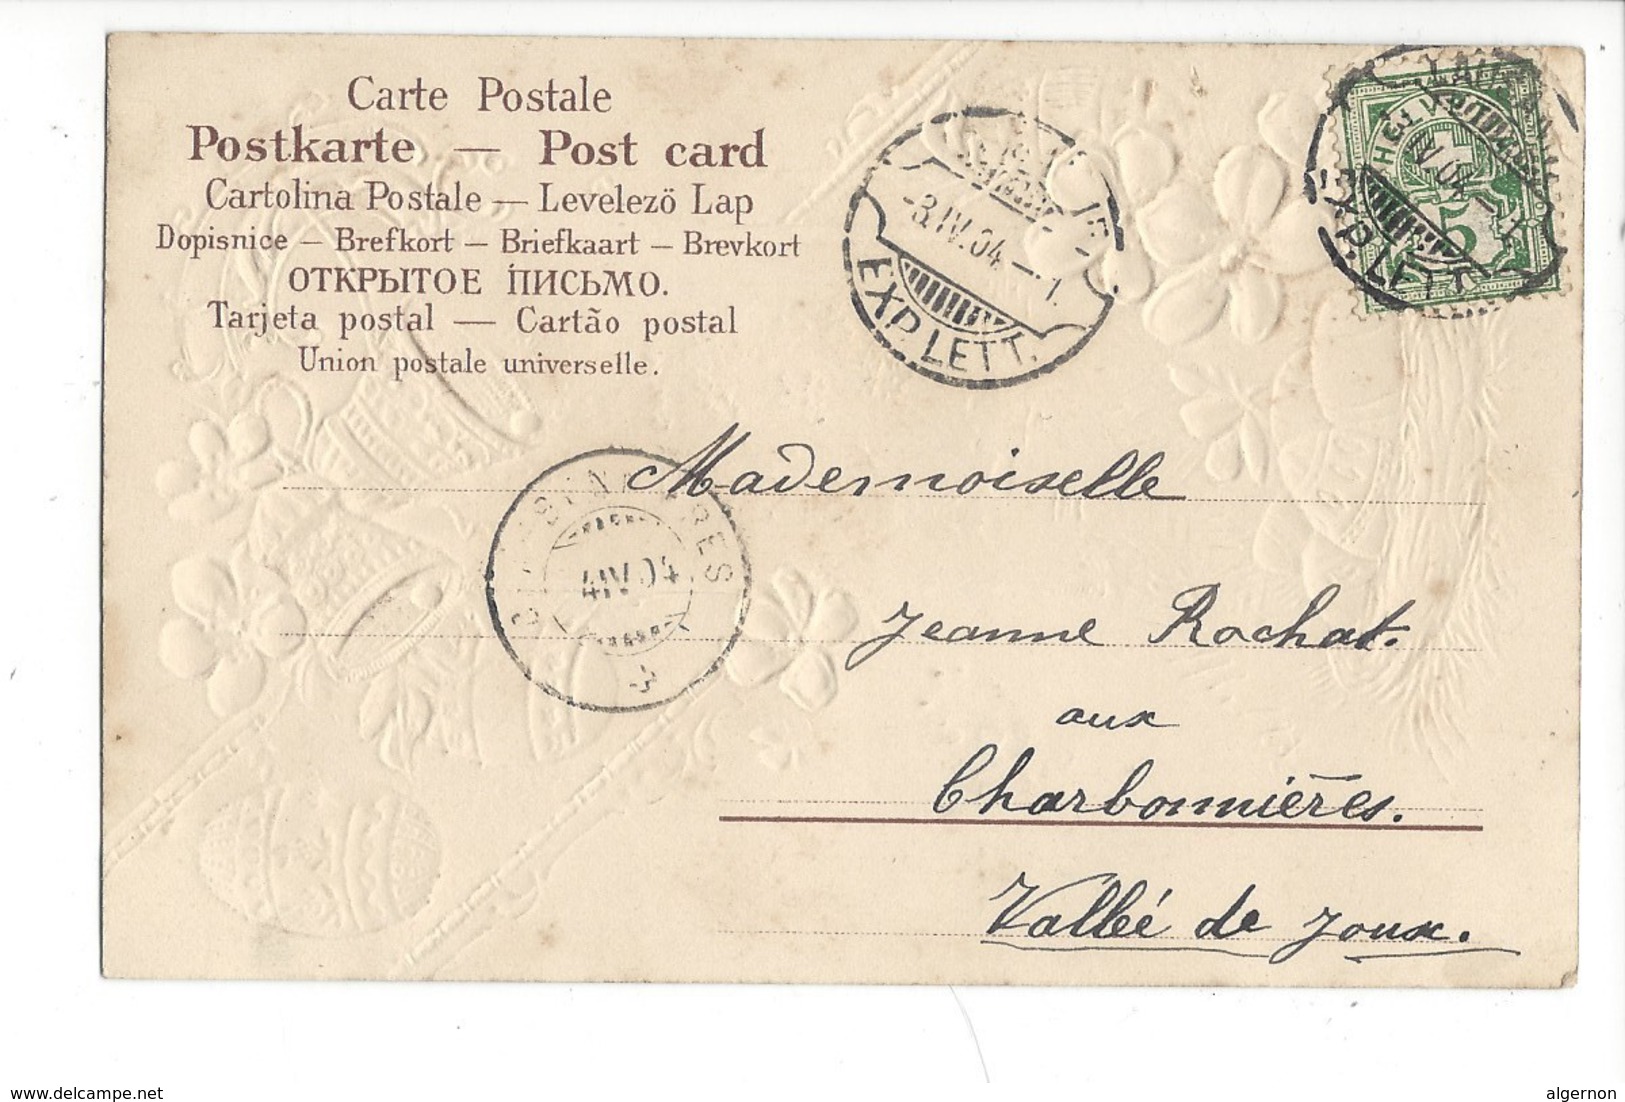 Carte Postale
Postkarte — Post card
Cartolina Postale — Levelezö Lap
Dopisnice — Brefkort — Briefkaart — Brevkort
ОТКРЫТОЕ ПИСЬМО.
Tarjeta postal — Cartão postal
Union postale universelle.
-3.IV.04.—1.
EXP. LETT.
HELVETIA
5
EXP. LETT.
4 IV 04
Mademoiselle
Jeanne Rochat.
aux
Charbonnières.
Vallée de Joux.
www.delcampe.net
algernon